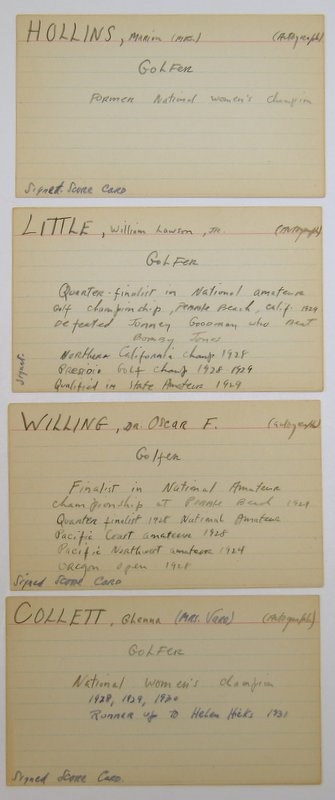 HOLLINS, Marion (Miss) (Autographs)
GOLFER
FORMER National women's champion
Signed Score Card
LITTLE, William Lawson, Jr. (Autographs)
GOLFER
Quarter-finalist in National amateur
Golf championship, Pebble Beach, Calif. 1929
Defeated Johnny Goodman who beat
Bobby Jones
Northern California Champ 1928
PRESIDIO Golf Champ 1928 1929
Qualified in State Amateur 1929
Signat.
WILLING, Dr. Oscar F. (Autographs)
Golfer
Finalist in National Amateur
championship at Pebble Beach 1929
Quarter finalist 1928 National Amateur
Pacific Coast amateur 1928
Pacific Northwest amateur 1924
Oregon open 1928
Signed Score Card
COLLETT, Glenna (MRS. Vare) (Autographs)
GOLFER
National Women's Champion
1928, 1929, 1930
Runner up to Helen Hicks 1931
Signed Score Card.